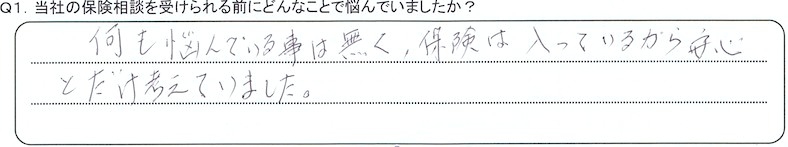 Q1. 当社の保険相談を受けられる前にどんなことで悩んでいましたか？
何も悩んでいる事は無く、保険は入っているから安心
とだけ考えていました。